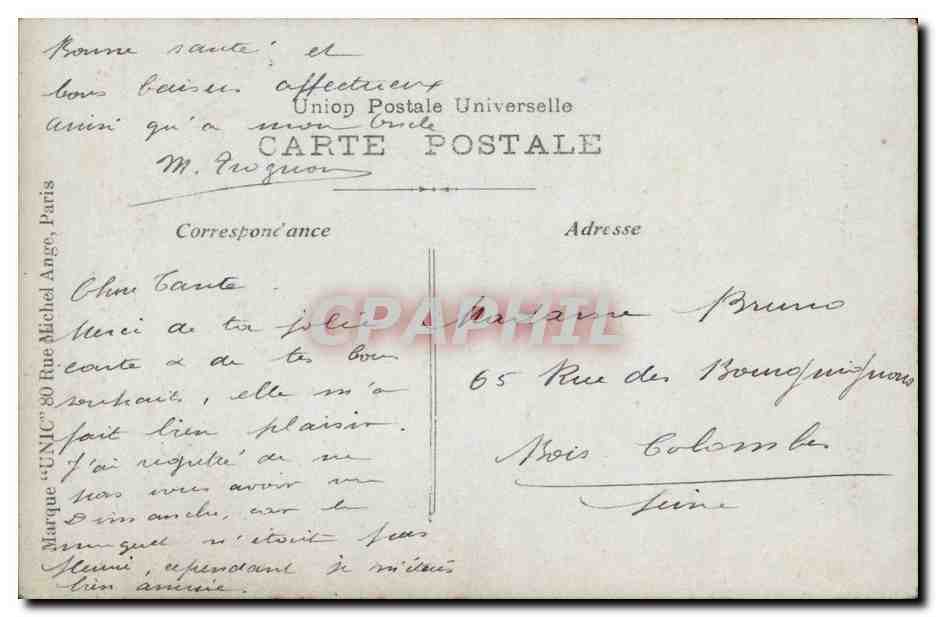 Bonne santé et
bons baisers affectueux
ainsi qu'a mon Oncle
M. Trognon
Union Postale Universelle
CARTE POSTALE
Correspondance
Adresse
Marque "UNIC" 80 Rue Michel Ange, Paris
Chère Tante
Merci de ta jolie
carte & de tes bons
souhaits, elle m'a
fait bien plaisir.
J'ai regretté de ne
pas vous avoir vu
Dimanche, car le
muguet n'était pas
fleuri, cependant je m'étais
bien amusée.
Madame Bruno
65 Rue des Bourguignons
Bois Colombes
Seine
CPAPHIL